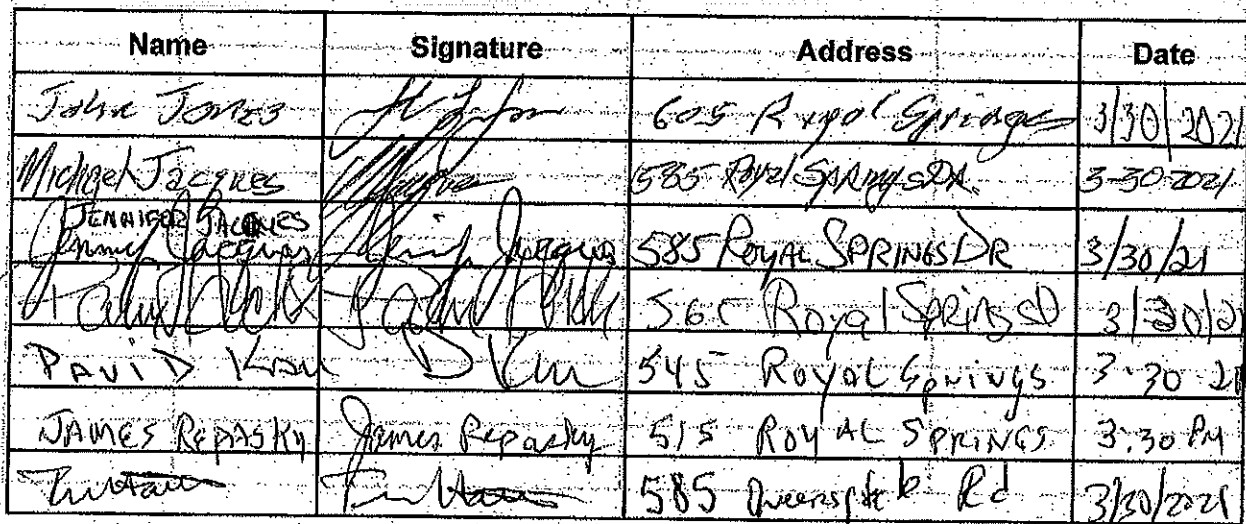 Name Signature Address Date
John Jones 605 Royal Springs 3/30/2021
Michael Jacques 585 Royal Springs DR. 3-30-2021
JENNIFER JACQUES
Jenny Jacques Jacques 585 ROYAL SPRINGS DR 3/30/21
565 Royal Springs D 3/30/2
DAVID 545 ROYAL Springs 3-30 21
JAMES REPASKY James Repasky 515 ROYAL SPRINGS 3:30 PM
585 Rd 3/30/2021